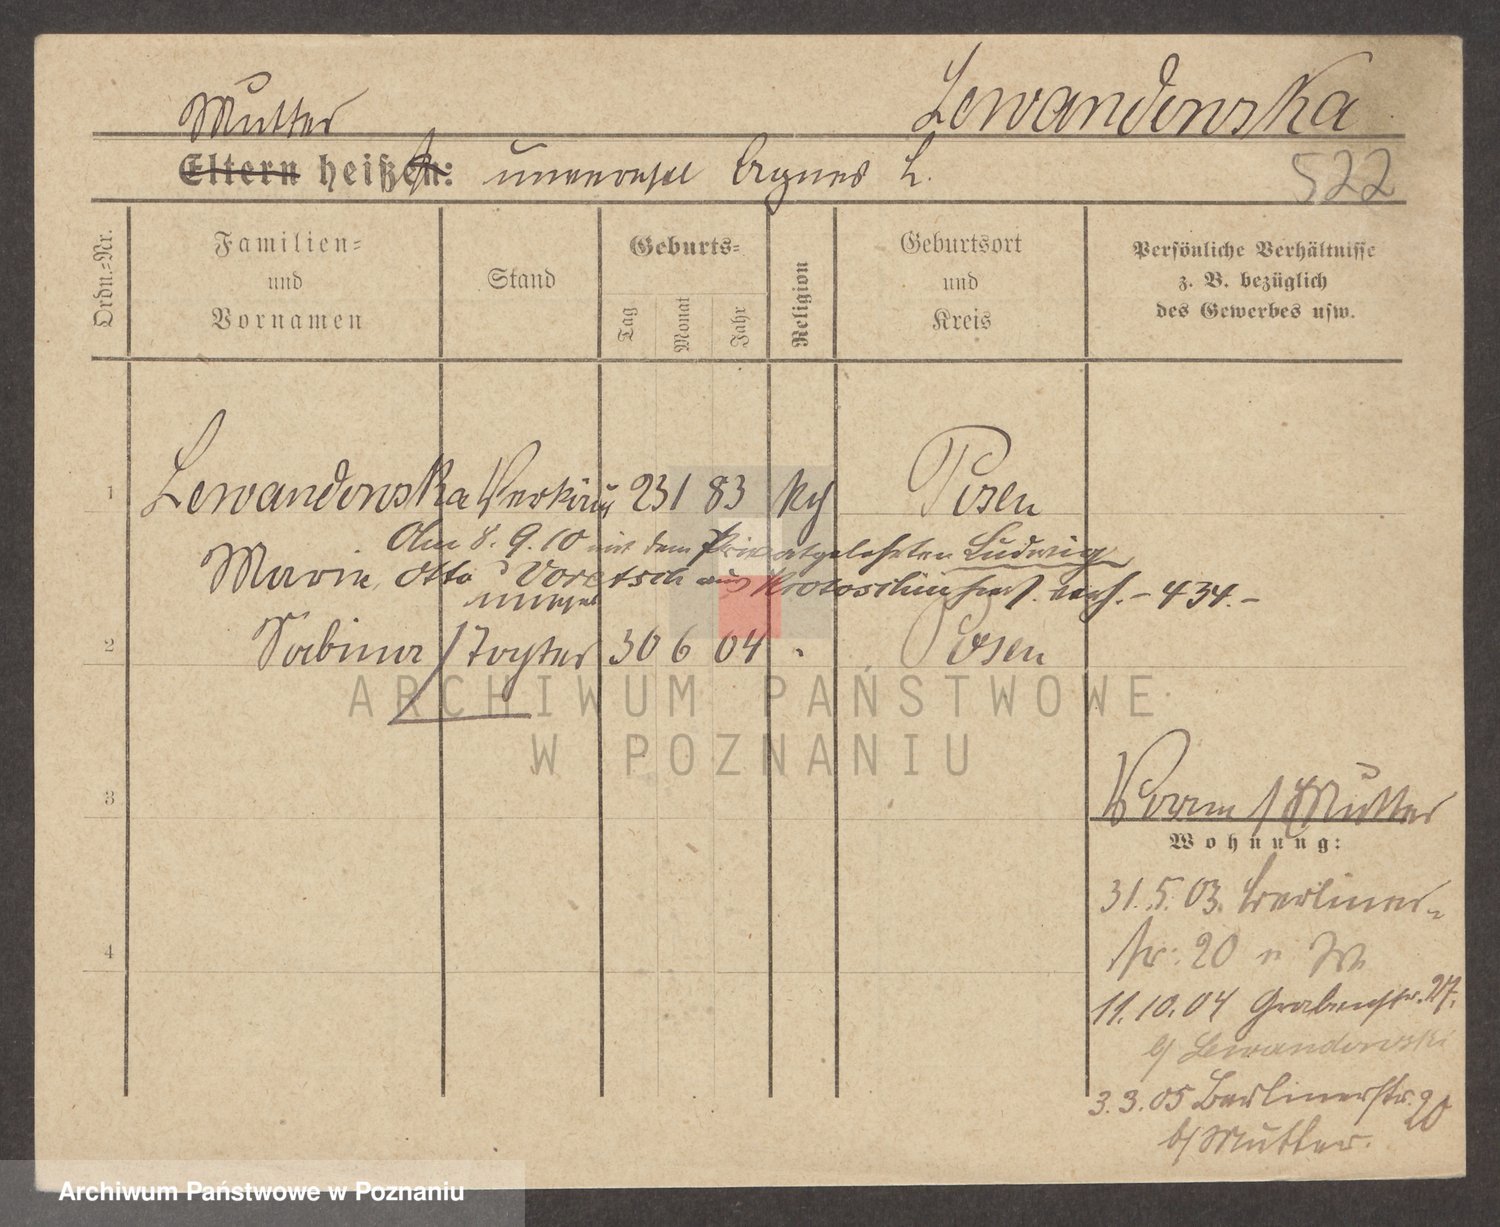 Mutter
Lewandowska
Eltern heißen: unverehel Agnes L.
522
Ordn.=Nr.
Familien=
und
Vornamen
Stand
Geburts=
Tag
Monat
Jahr
Religion
Geburtsort
und
Kreis
Persönliche Verhältnisse
z. B. bezüglich
des Gewerbes usw.
1 Lewandowska 23 1 83 Posen
Am 8. 9. 10 mit dem Privatgelehrten Ludwig
Marie Otto Voretsch aus Krotoschin verh. – 434. –
unehel
2 Sabina Tochter 30 6 04 Posen
ARCHIWUM PAŃSTWOWE
W POZNANIU
3
Mutter
Wohnung:
31. 5. 03. Berliner-
str. 20
4
11. 10. 04 Grabenstr. 27.
b/ Lewandowski
3. 3. 05 Berlinerstr. 20
b/ Mutter.
Archiwum Państwowe w Poznaniu